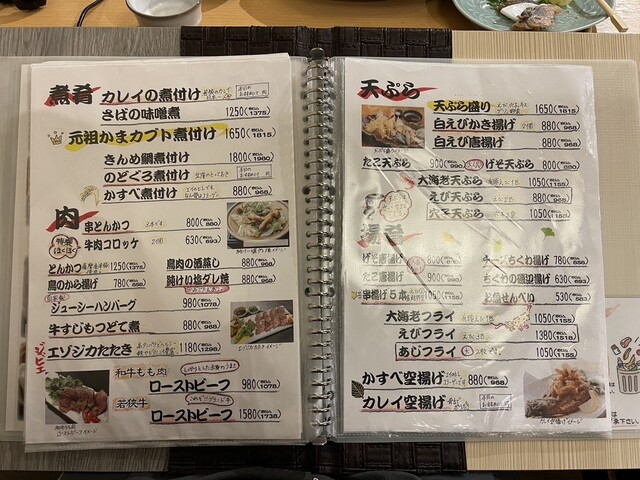 煮肴
カレイの煮付け
さばの味噌煮 1250(税込1375)
元祖かまカブト煮付け 1650(税込1815)
きんめ鯛煮付け 1800(税込1980)
のどぐろ煮付け
かすべ煮付け 880(税込968)
肉
串とんかつ 800(税込880)
牛肉コロッケ 2個 630(税込693)
とんかつ 1250(税込1375)
鳥のから揚げ 780(税込858)
鳥肉の酒蒸し 880(税込968)
鶏けい塩ダレ焼 880(税込968)
ジューシーハンバーグ 980(税込1078)
牛すじもつどて煮 880(税込968)
ジビエ
エゾジカたたき 1180(税込1298)
和牛もも肉
ローストビーフ 980(税込1078)
若狭牛
ローストビーフ 1580(税込1738)
天ぷら
天ぷら盛り 1650(税込1815)
白えびかき揚げ 880(税込968)
白えび唐揚げ 880(税込968)
たこ天ぷら 900(税込990)
げそ天ぷら 800(税込880)
大海老天ぷら 1050(税込1155)
えび天ぷら 880(税込968)
穴子天ぷら
揚肴
げそ唐揚げ 800(税込880)
チーズちくわ揚げ
たこ唐揚げ 900(税込990)
ちくわの磯辺揚げ 630(税込693)
串揚げ5本 1050(税込1155)
お魚せんべい 530(税込583)
大海老フライ 1050(税込1155)
えびフライ 1380(税込1518)
あじフライ 1050(税込1155)
かすべ空揚げ 880(税込968)
カレイ空揚げ